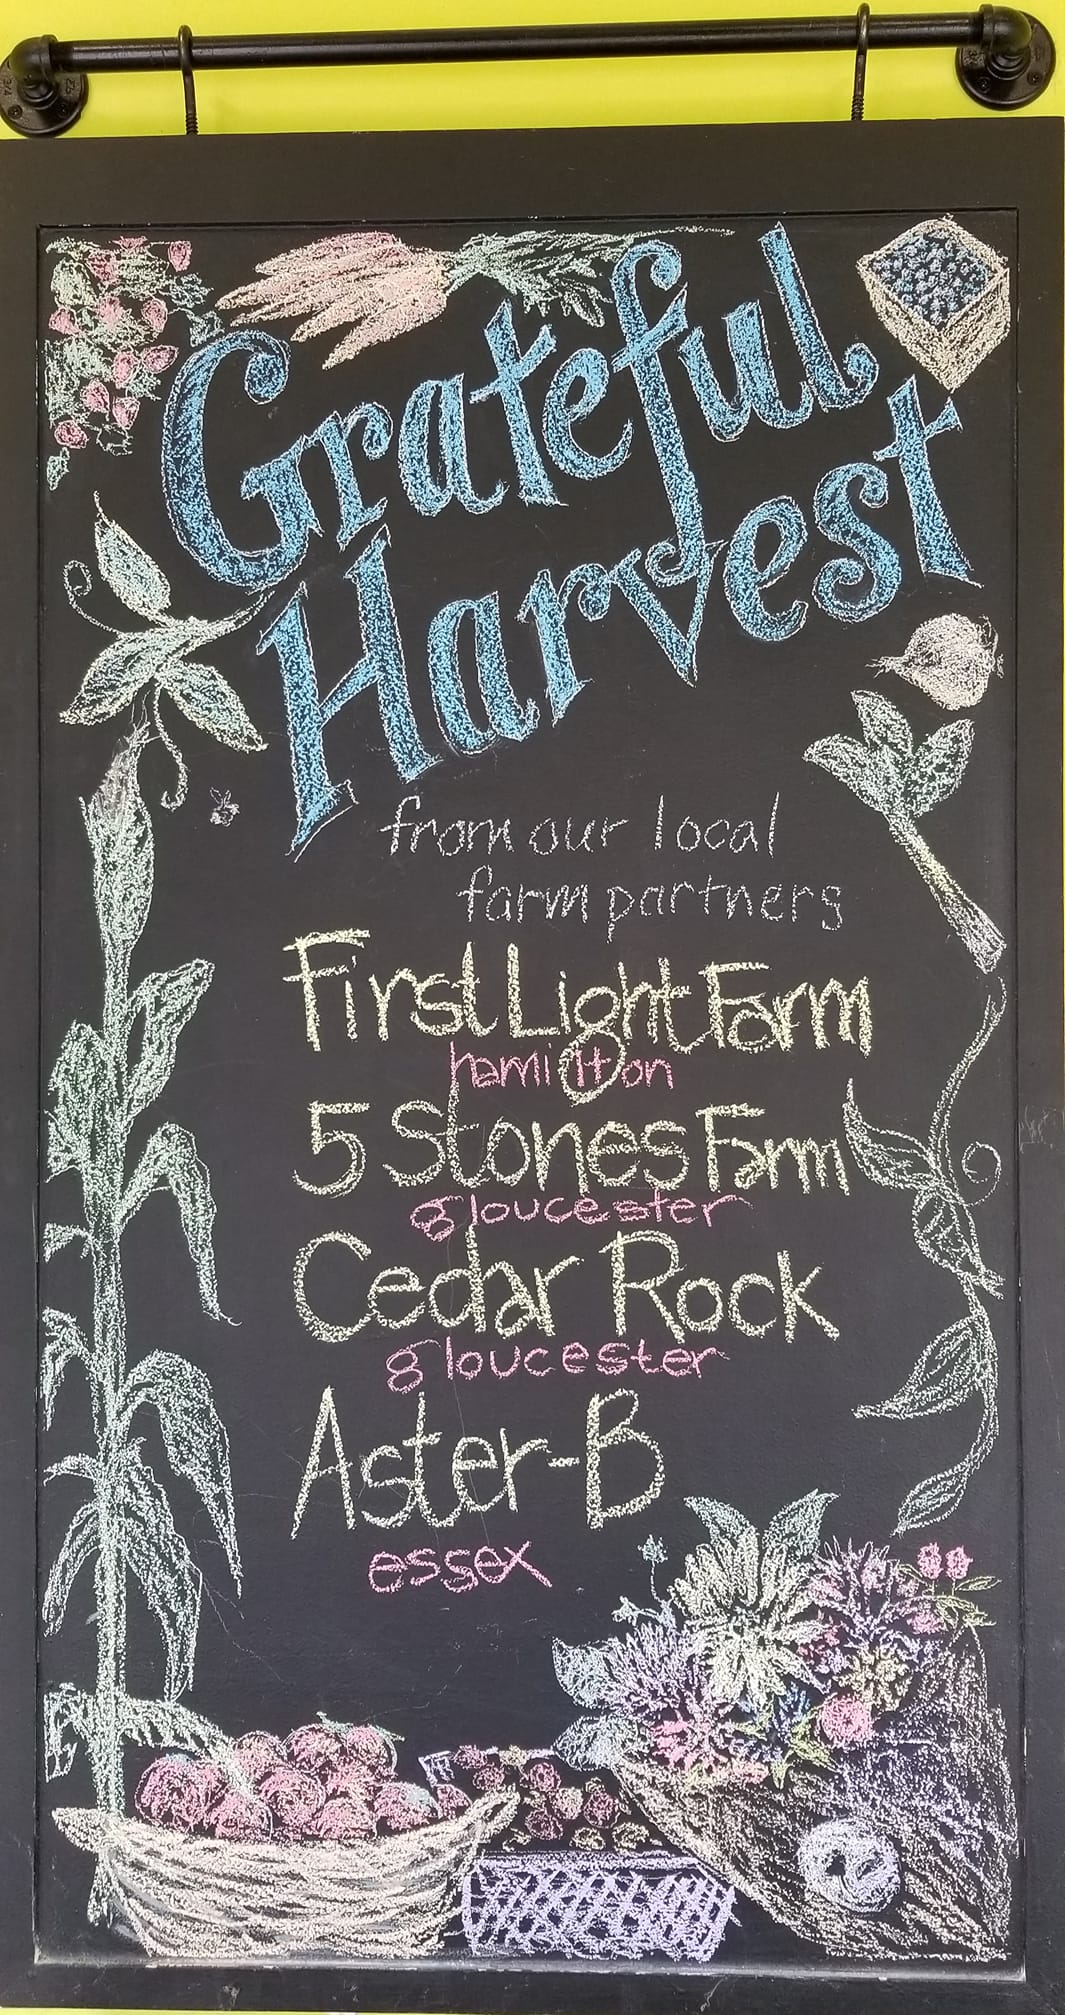 Grateful
Harvest
from our local
farm partners
First Light Farm
hamilton
5 Stones Farm
gloucester
Cedar Rock
gloucester
Aster-B
essex